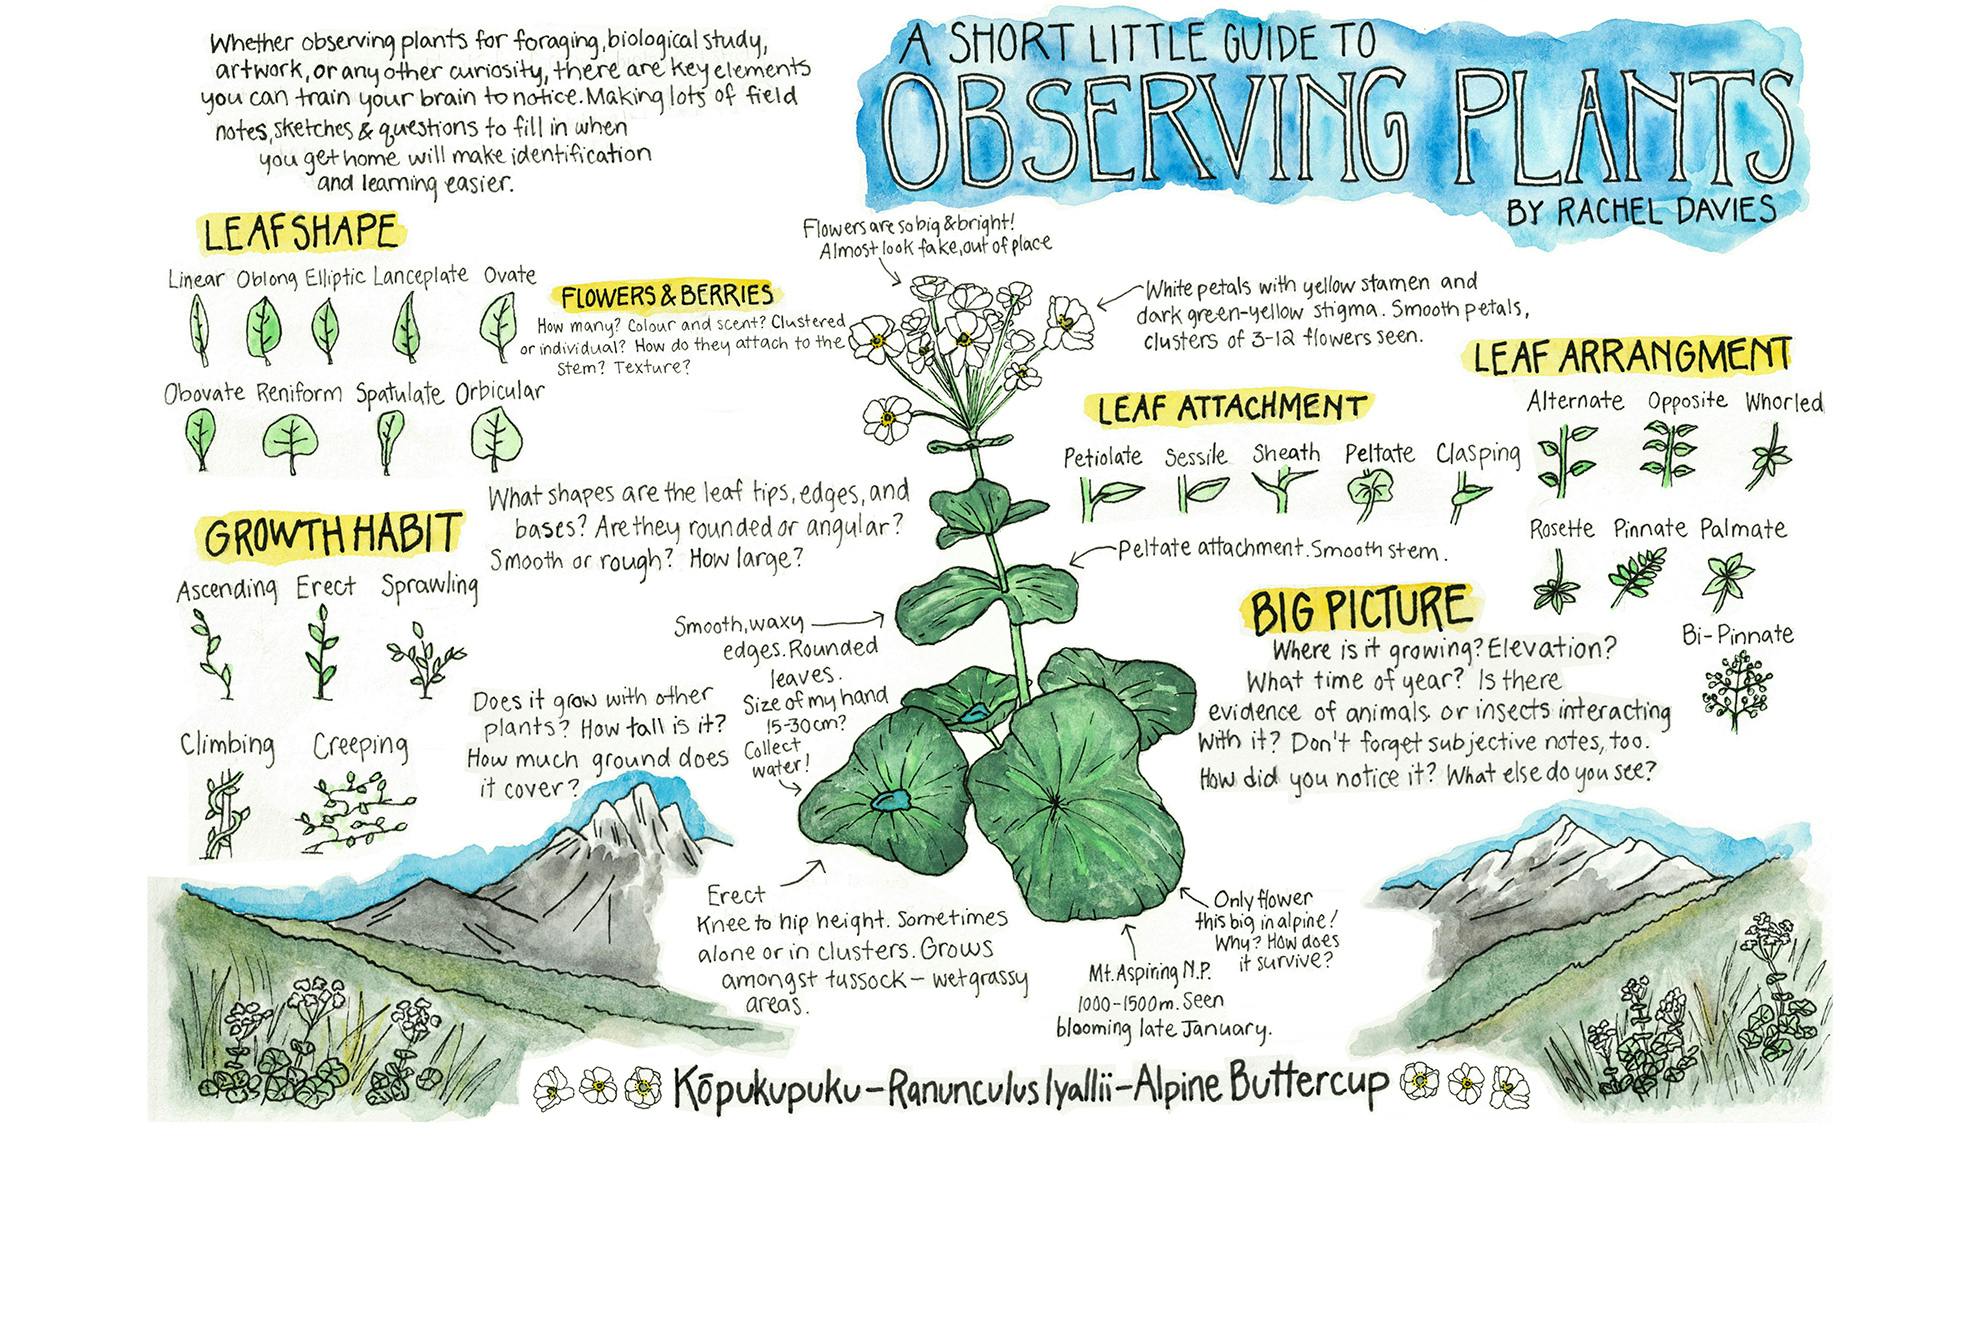 Whether observing plants for foraging, biological study,
artwork, or any other curiosity, there are key elements
you can train your brain to notice. Making lots of field
notes, sketches & questions to fill in when
you get home will make identification
and learning easier.
A SHORT LITTLE GUIDE TO
OBSERVING PLANTS
BY RACHEL DAVIES
LEAF SHAPE
Linear Oblong Elliptic Lanceplate Ovate
Obovate Reniform Spatulate Orbicular
FLOWERS & BERRIES
How many? Colour and scent? Clustered
or individual? How do they attach to the
stem? Texture?
Flowers are so big & bright!
Almost look fake, out of place
White petals with yellow stamen and
dark green-yellow stigma. Smooth petals,
clusters of 3-12 flowers seen.
LEAF ATTACHMENT
Petiolate Sessile Sheath Peltate Clasping
LEAF ARRANGMENT
Alternate Opposite Whorled
Rosette Pinnate Palmate
Bi-Pinnate
What shapes are the leaf tips, edges, and
bases? Are they rounded or angular?
Smooth or rough? How large?
Peltate attachment. Smooth stem.
GROWTH HABIT
Ascending Erect Sprawling
Climbing Creeping
Does it grow with other
plants? How tall is it?
How much ground does
it cover?
Smooth, waxy
edges. Rounded
leaves.
Size of my hand
15-30cm?
Collect
water!
BIG PICTURE
Where is it growing? Elevation?
What time of year? Is there
evidence of animals or insects interacting
with it? Don't forget subjective notes, too.
How did you notice it? What else do you see?
Erect
Knee to hip height. Sometimes
alone or in clusters. Grows
amongst tussock - wet grassy
areas.
Only flower
this big in alpine!
Why? How does
it survive?
Mt. Aspiring N.P.
1000-1500m. Seen
blooming late January.
Kōpukupuku - Ranunculus lyallii - Alpine Buttercup